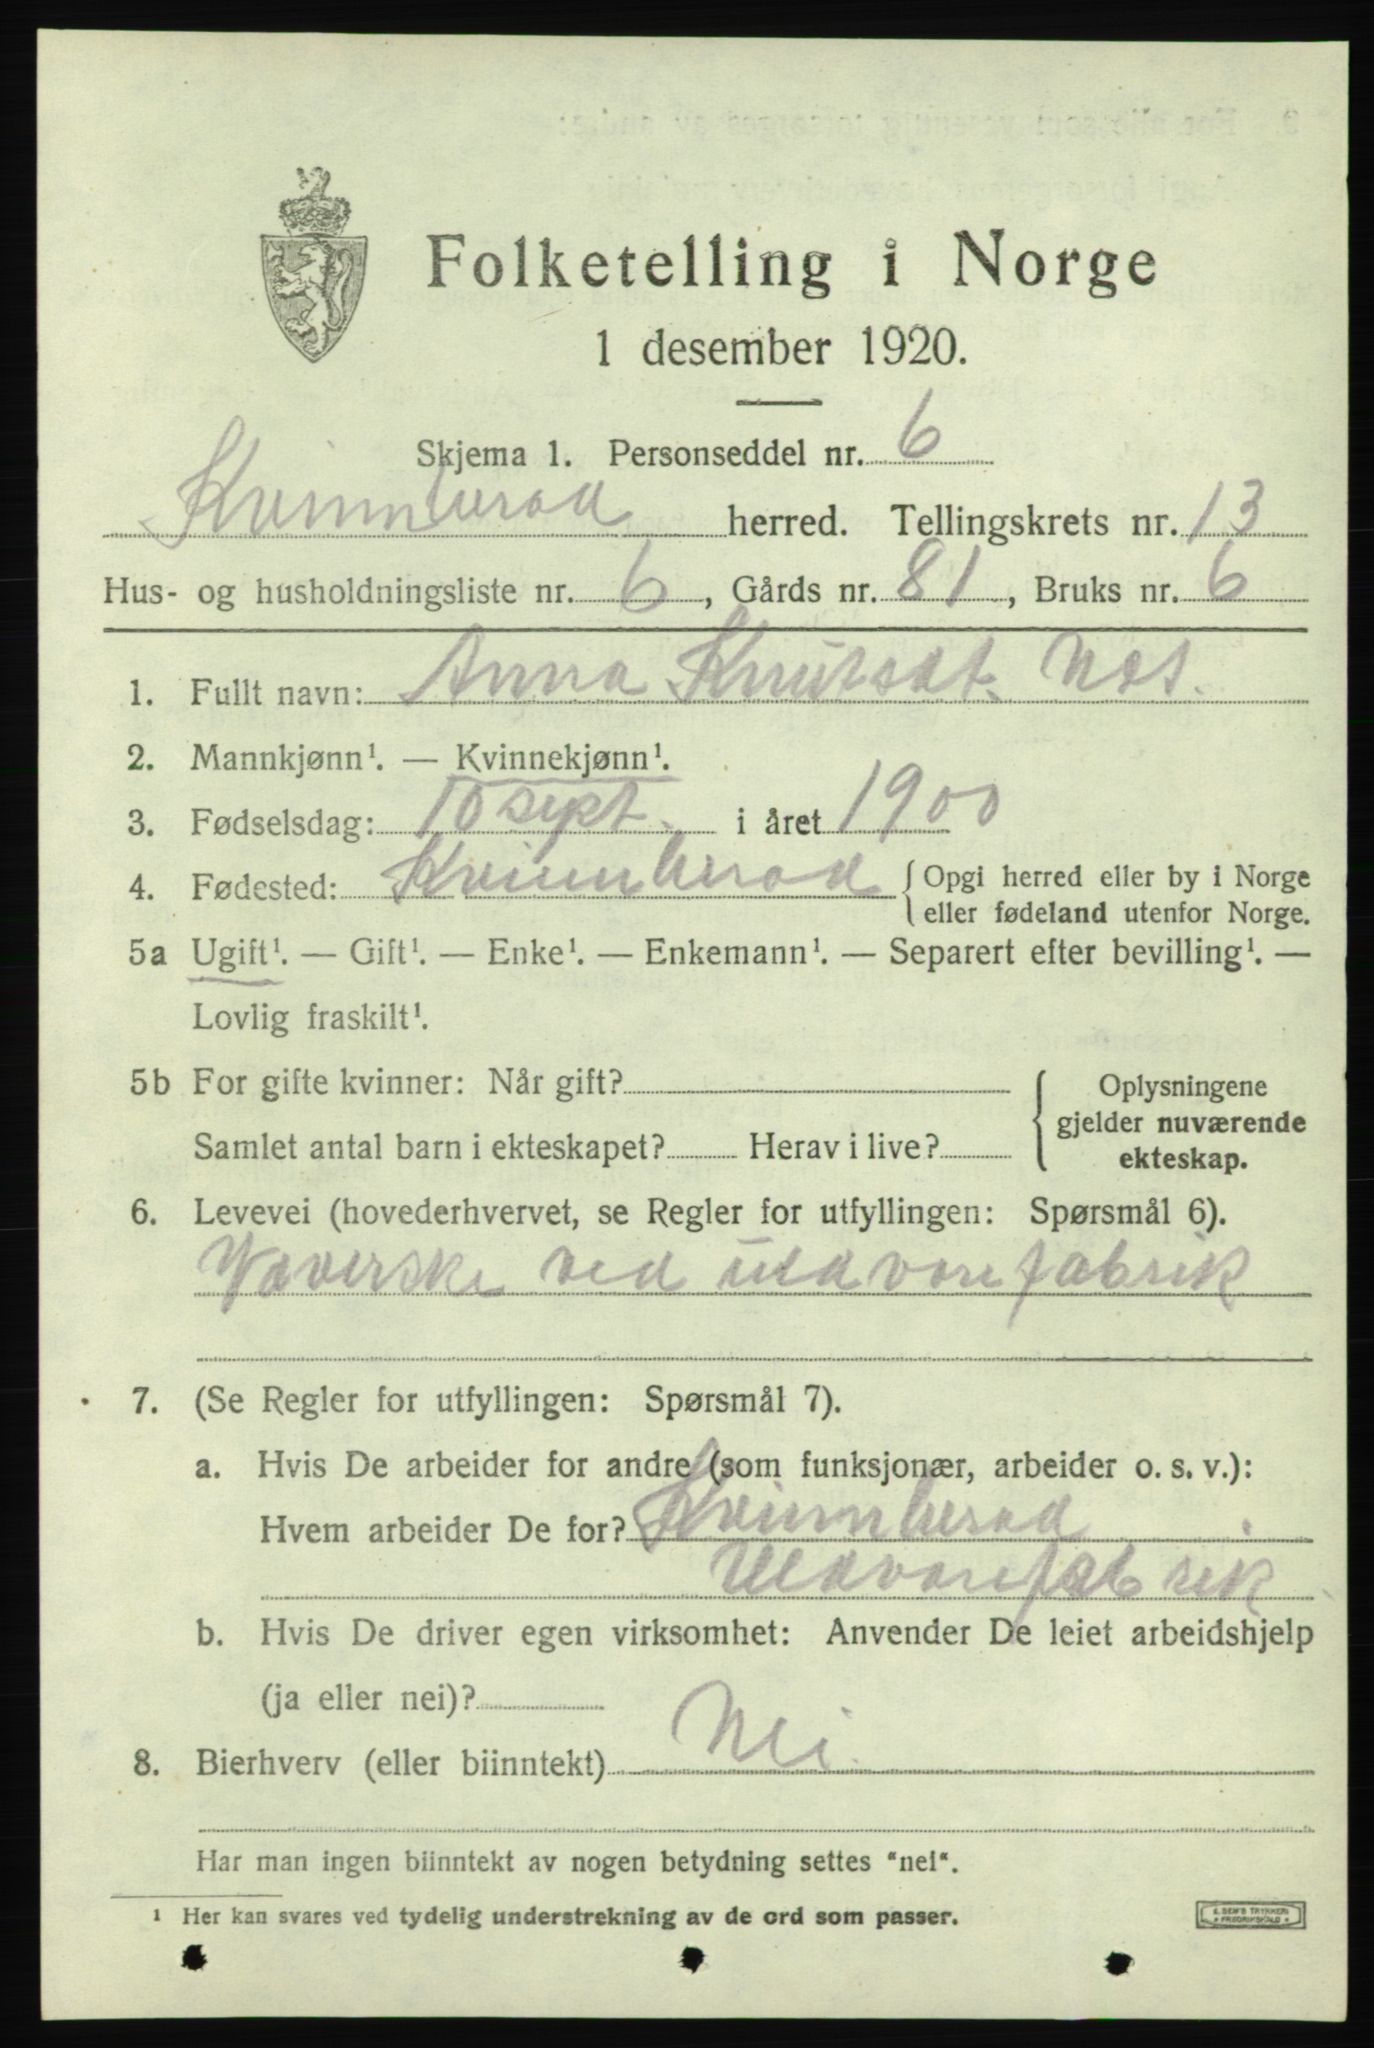 Folketelling i Norge
1 desember 1920.
Skjema 1. Personseddel nr. 6
Kvinnherad herred. Tellingskrets nr. 13
Hus- og husholdningsliste nr. 6, Gårds nr. 81, Bruks nr. 6
1. Fullt navn: Anna Knutsdt. Næs.
2. Mannkjønn¹. — Kvinnekjønn¹.
3. Fødselsdag: 10 sept. i året 1900
4. Fødested: Kvinnherad {Opgi herred eller by i Norge
eller fødeland utenfor Norge.
5a Ugift¹. — Gift¹. — Enke¹. — Enkemann¹. — Separert efter bevilling¹. —
Lovlig fraskilt¹.
5b For gifte kvinner: Når gift?
Samlet antal barn i ekteskapet? Herav i live?
{ Oplysningene
gjelder nuværende
ekteskap.
6. Levevei (hovederhvervet, se Regler for utfyllingen: Spørsmål 6).
Væverske ved uldvarefabrik
7. (Se Regler for utfyllingen: Spørsmål 7).
a. Hvis De arbeider for andre (som funksjonær, arbeider o. s. v.):
Hvem arbeider De for? Kvinnherad
Uldvarefabrik
b. Hvis De driver egen virksomhet: Anvender De leiet arbeidshjelp
(ja eller nei)?
8. Bierhverv (eller biinntekt) Nei
Har man ingen biinntekt av nogen betydning settes "nei".
¹ Her kan svares ved tydelig understrekning av de ord som passer.